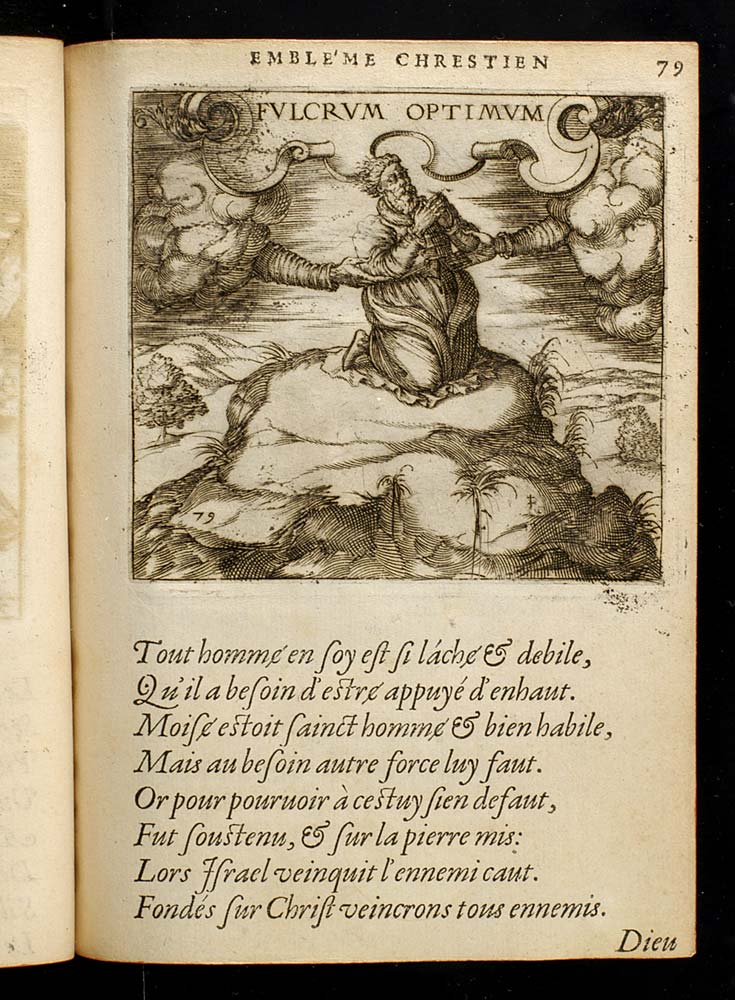 EMBLE'ME CHRESTIEN
79
FVLCRVM OPTIMVM
79
Tout homme̸ en ſoy eſt ſi láche̸ & debile,
Qu'il a beſoin d'eſtre̸ appuyé d'enhaut.
Moiſe̸ eſtoit ſainct homme̸ & bien habile,
Mais au beſoin autre force luy faut.
Or pour pouruoir à ceſtuy ſien defaut,
Fut ſouſtenu, & ſur la pierre mis:
Lors Iſrael veinquit l'ennemi caut.
Fondés ſur Chriſt veincrons tous ennemis.
Dieu